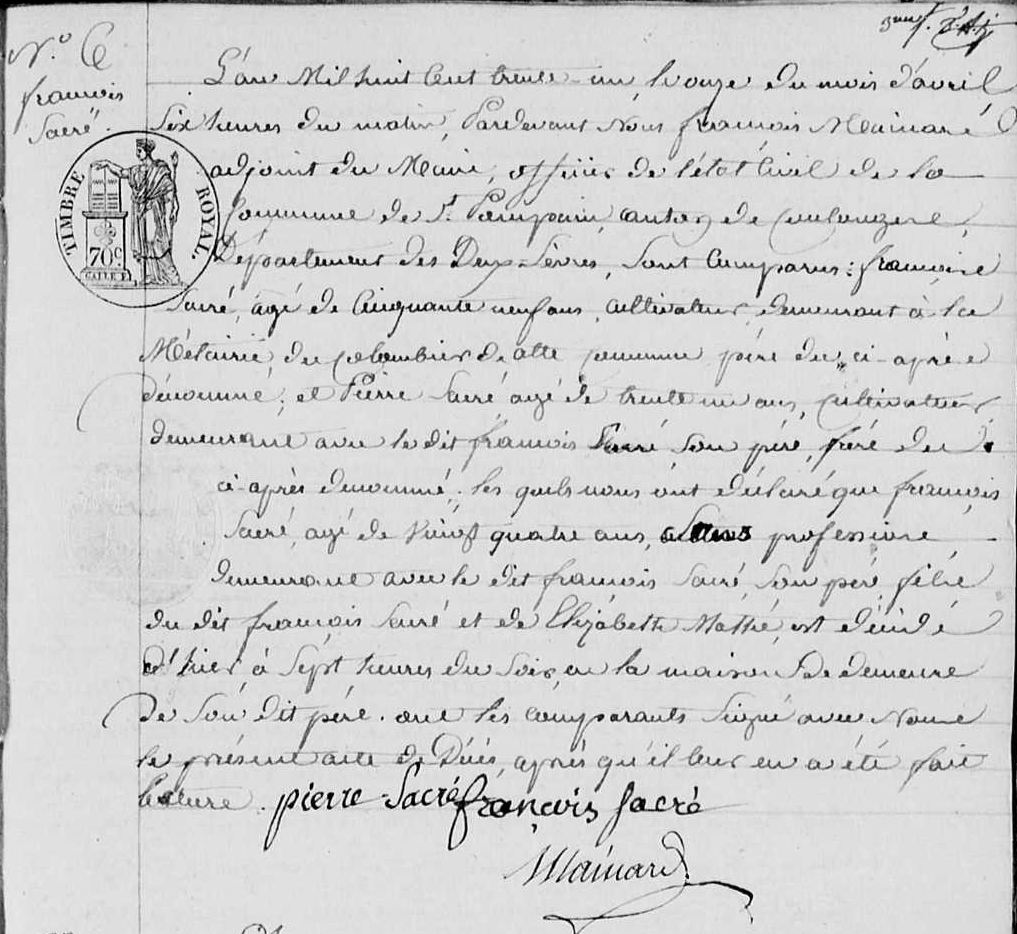 N.º 6
françois
Sacré.
L'an Mil huit Cent trente-un, le onze du mois d'avril
Six heures du matin, Pardevant Nous françois Mainard
adjoint du Maire, officier de l'état Civil de la
Commune de St. Pompain, canton de Coulonges,
Département des Deux-Sèvres, Sont Comparus: françois
Sacré, agé de Cinquante neuf ans, cultivateur, demeurant à la
Métairie du Colombier de cette commune père du ci-après
dénommé; et Pierre Sacré agé de trente un ans, cultivateur
demeurant avec le dit françois Sacré son père, frère du
ci-après dénommé; les quels nous ont déclaré que françois
Sacré, agé de Vingt quatre ans, sans profession,
demeurant avec le dit françois Sacré, son père, fils
du dit françois Sacré et de Elizabeth Mathé, est décédé
d'hier à Sept heures du Soir, en la maison de demeure
de Son dit père. ont les comparants Signé avec Nous
le présent acte de Décès, après qu'il leur en a été fait
lecture. pierre Sacré françois Sacré
Mainard
TIMBRE ROYAL.
70c.